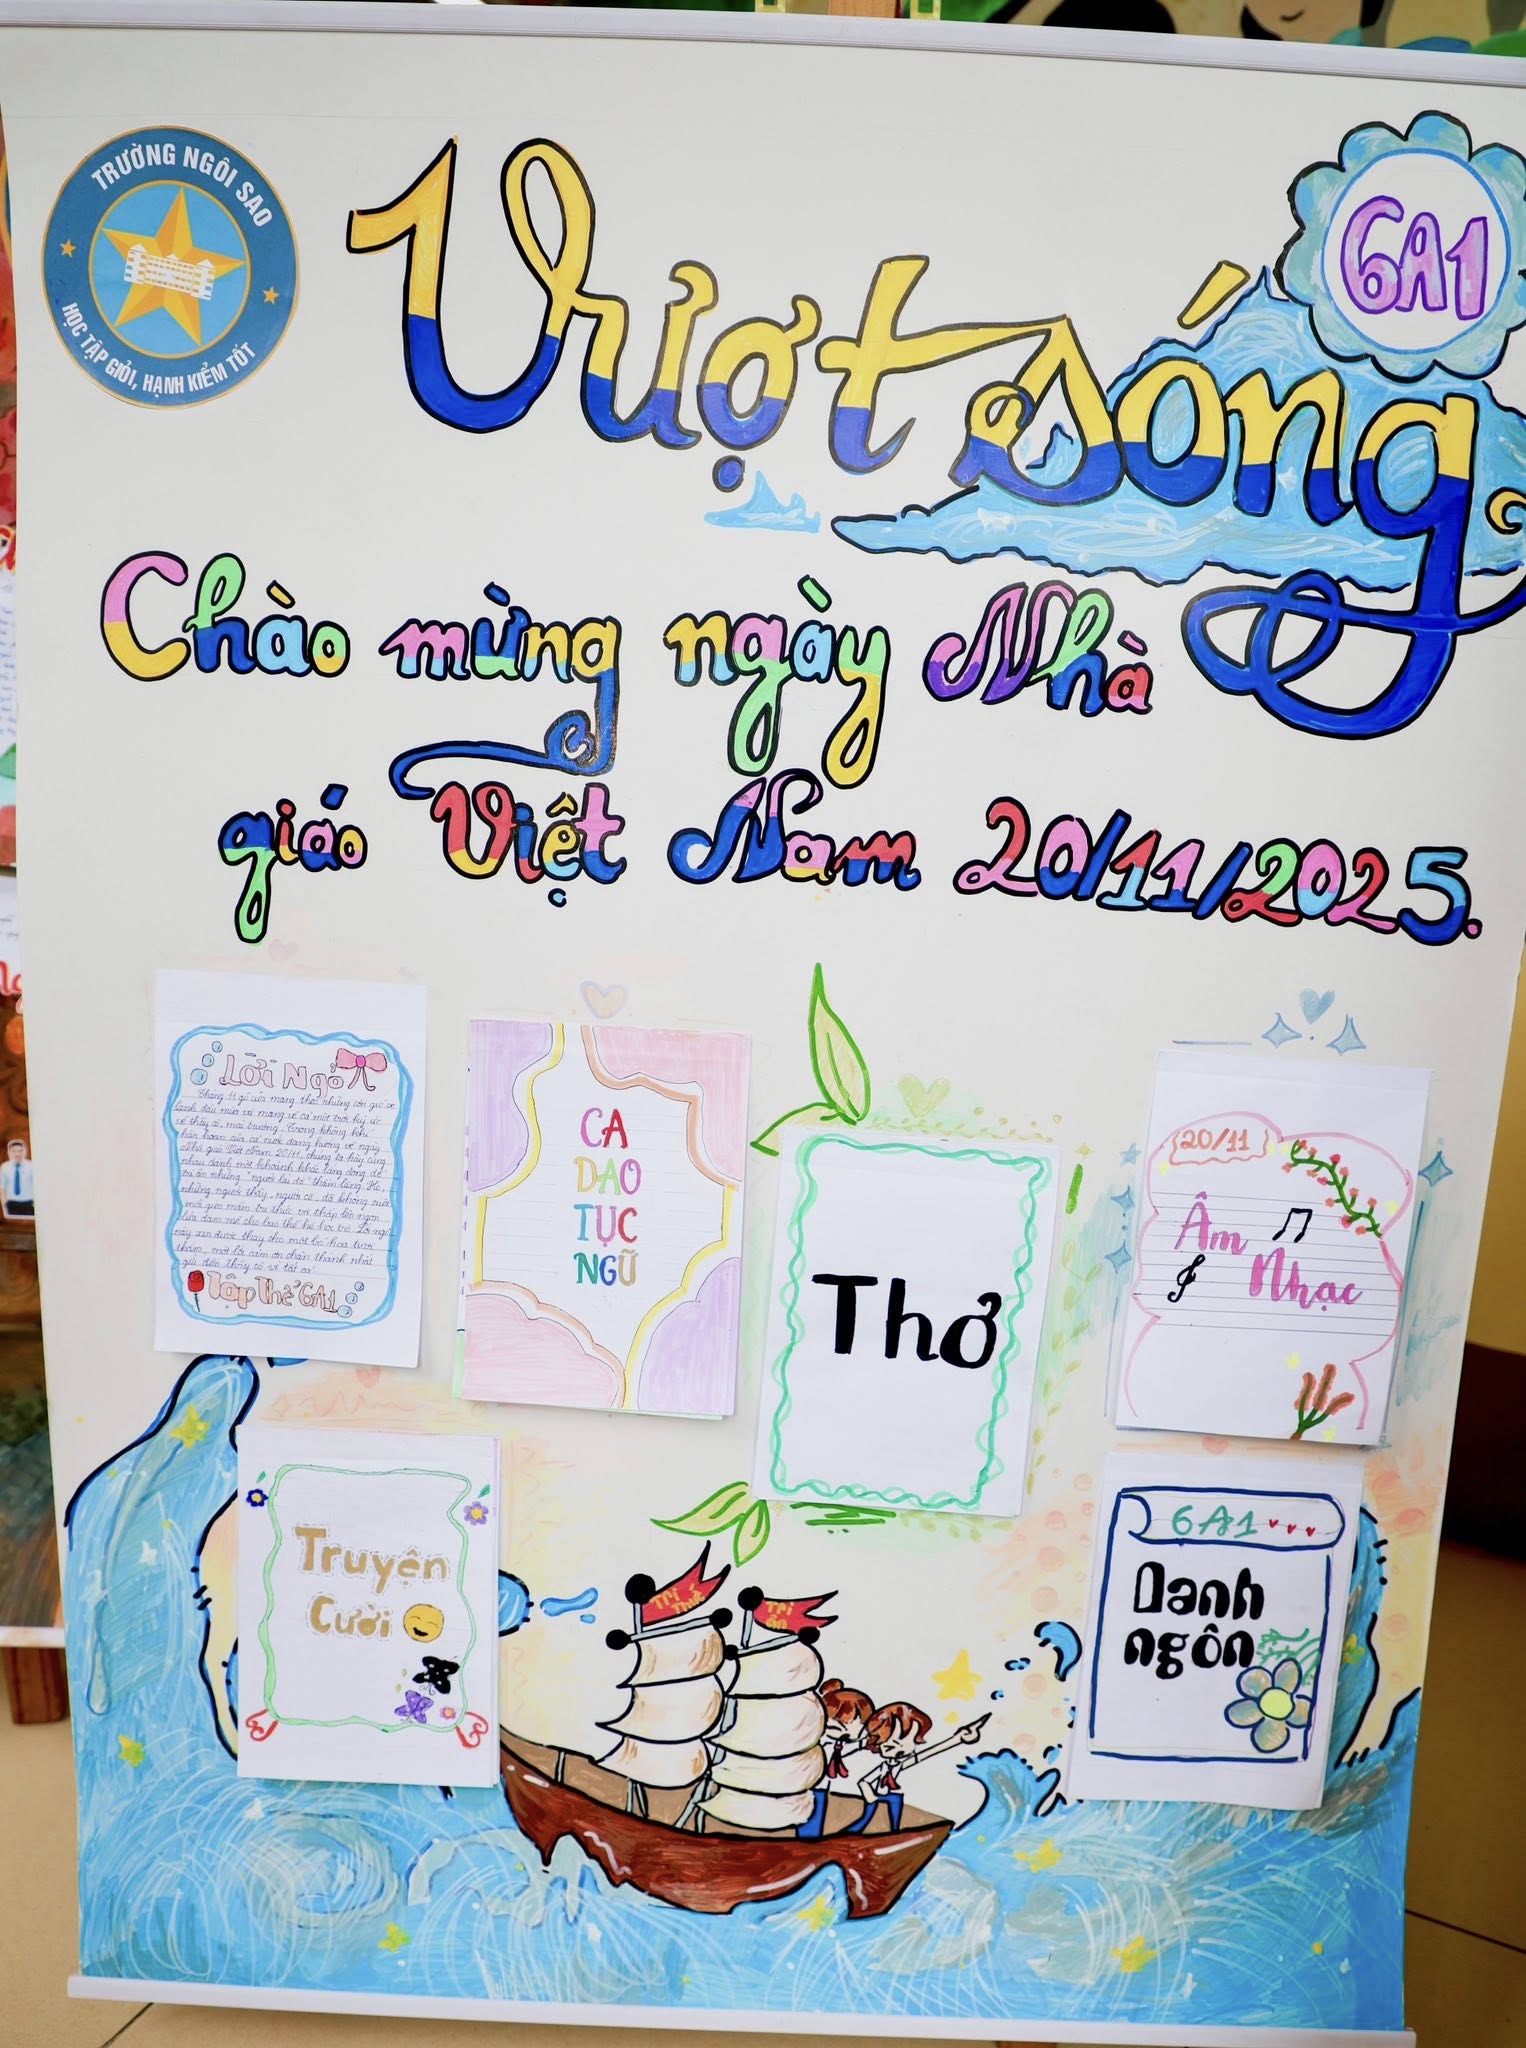 TRƯỜNG NGÔI SAO
HỌC TẬP GIỎI, HẠNH KIỂM TỐT
Vượt sóng
6A1
Chào mừng ngày Nhà
giáo Việt Nam 20/11/2025.
Lời Ngỏ
Tháng 11 gõ cửa mang theo những cơn gió se
lạnh đầu mùa và mang về cả một trời ký ức
về thầy cô, mái trường. Trong không khí
hân hoan của cả nước đang hướng về ngày
Nhà giáo Việt Nam 20/11, chúng ta hãy cùng
nhau dành một khoảnh khắc lắng đọng để
tri ân những "người lái đò" thầm lặng. Họ,
những người thầy, người cô, đã không
mỏi gieo mầm tri thức và thắp lên ngọn
lửa đam mê cho bao thế hệ học trò. Lời ngỏ
này xin được thay cho một bó hoa tươi
thắm, một lời cảm ơn chân thành nhất
gửi đến thầy cô
Tập Thể 6A1
CA
DAO
TỤC
NGỮ
Thơ
20/11
Âm
Nhạc
Truyện
Cười
6A1
Danh
ngôn
TRI THỨC
TRI ÂN